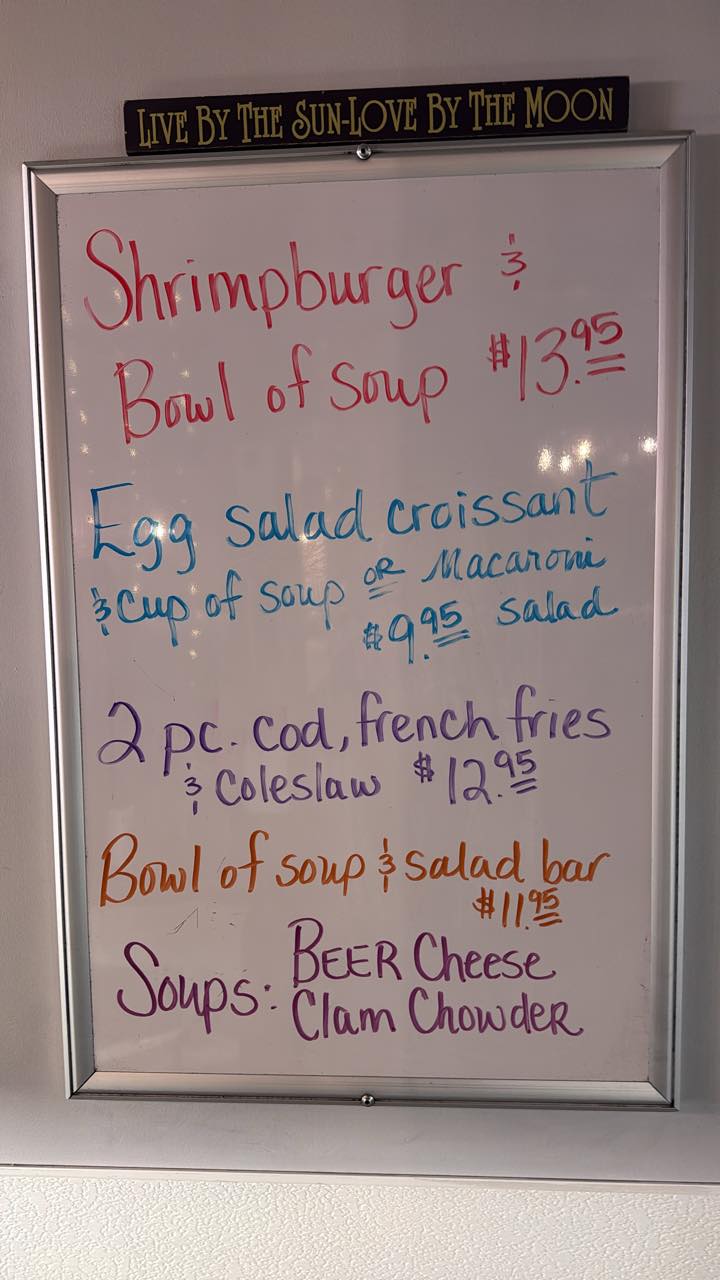 LIVE BY THE SUN-LOVE BY THE MOON
Shrimpburger &
Bowl of soup $13.95
Egg salad croissant
& cup of soup OR Macaroni
$9.95 salad
2 pc. cod, french fries
& Coleslaw $12.95
Bowl of soup & salad bar
$11.95
Soups: BEER Cheese
Clam ChowdeR